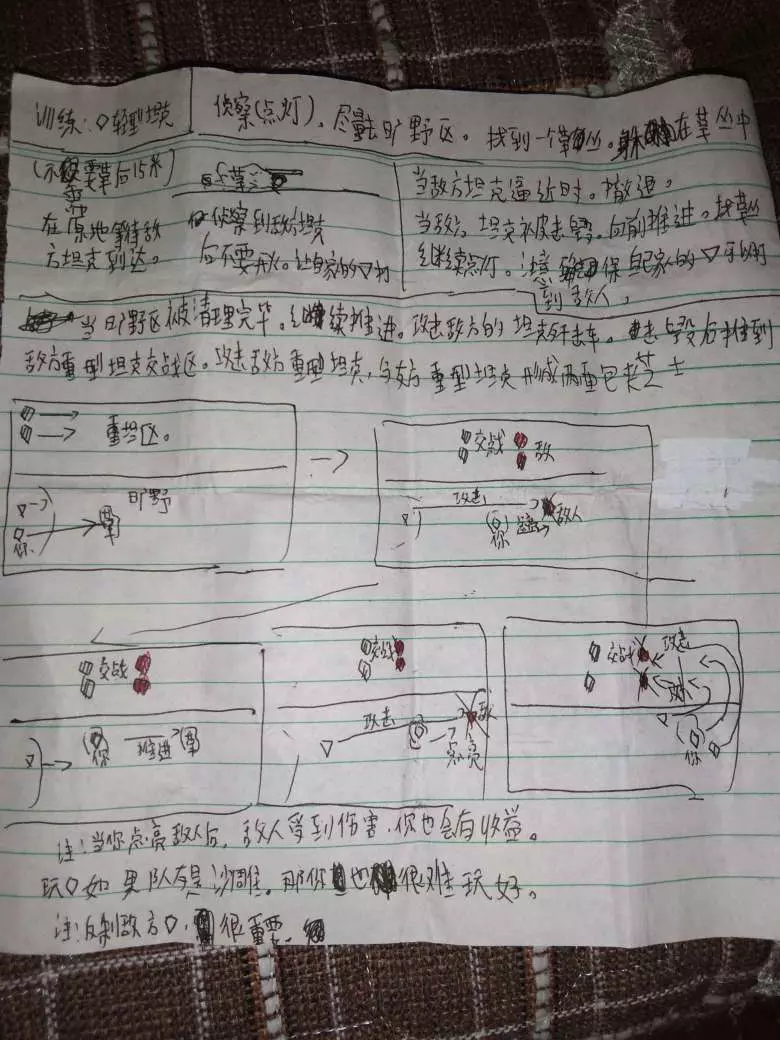 训练:◇轻型坦克
侦察(点灯)、尽量去旷野区。找到一个草丛。躲在草丛中
(不需要草后15米)
在原地等待敌方坦克到达。
侦察到敌方坦克
后不要开火。让自家的▽打
当敌方坦克逼近时。撤退。
当敌方坦克被击毁。向前推进。找草丛
继续点灯。确保自己家人的▽可以打
到敌人。
当旷野区被清理完毕。继续推进。攻击敌方的坦克歼击车。击毁后推到
敌方重型坦克交战区。攻击敌方重型坦克,与友方重型坦克形成两面包夹芝士
重坦区。
旷野
草
你
交战
敌
攻击
敌人
你
交战
你
推进
草
交战
攻击
敌
点亮
交战
攻击
你
注:当你点亮敌人后,敌人受到伤害.你也会有收益。
玩◇如果队友是沙雕。那你也很难玩好。
注:反制敌方◇.很重要.